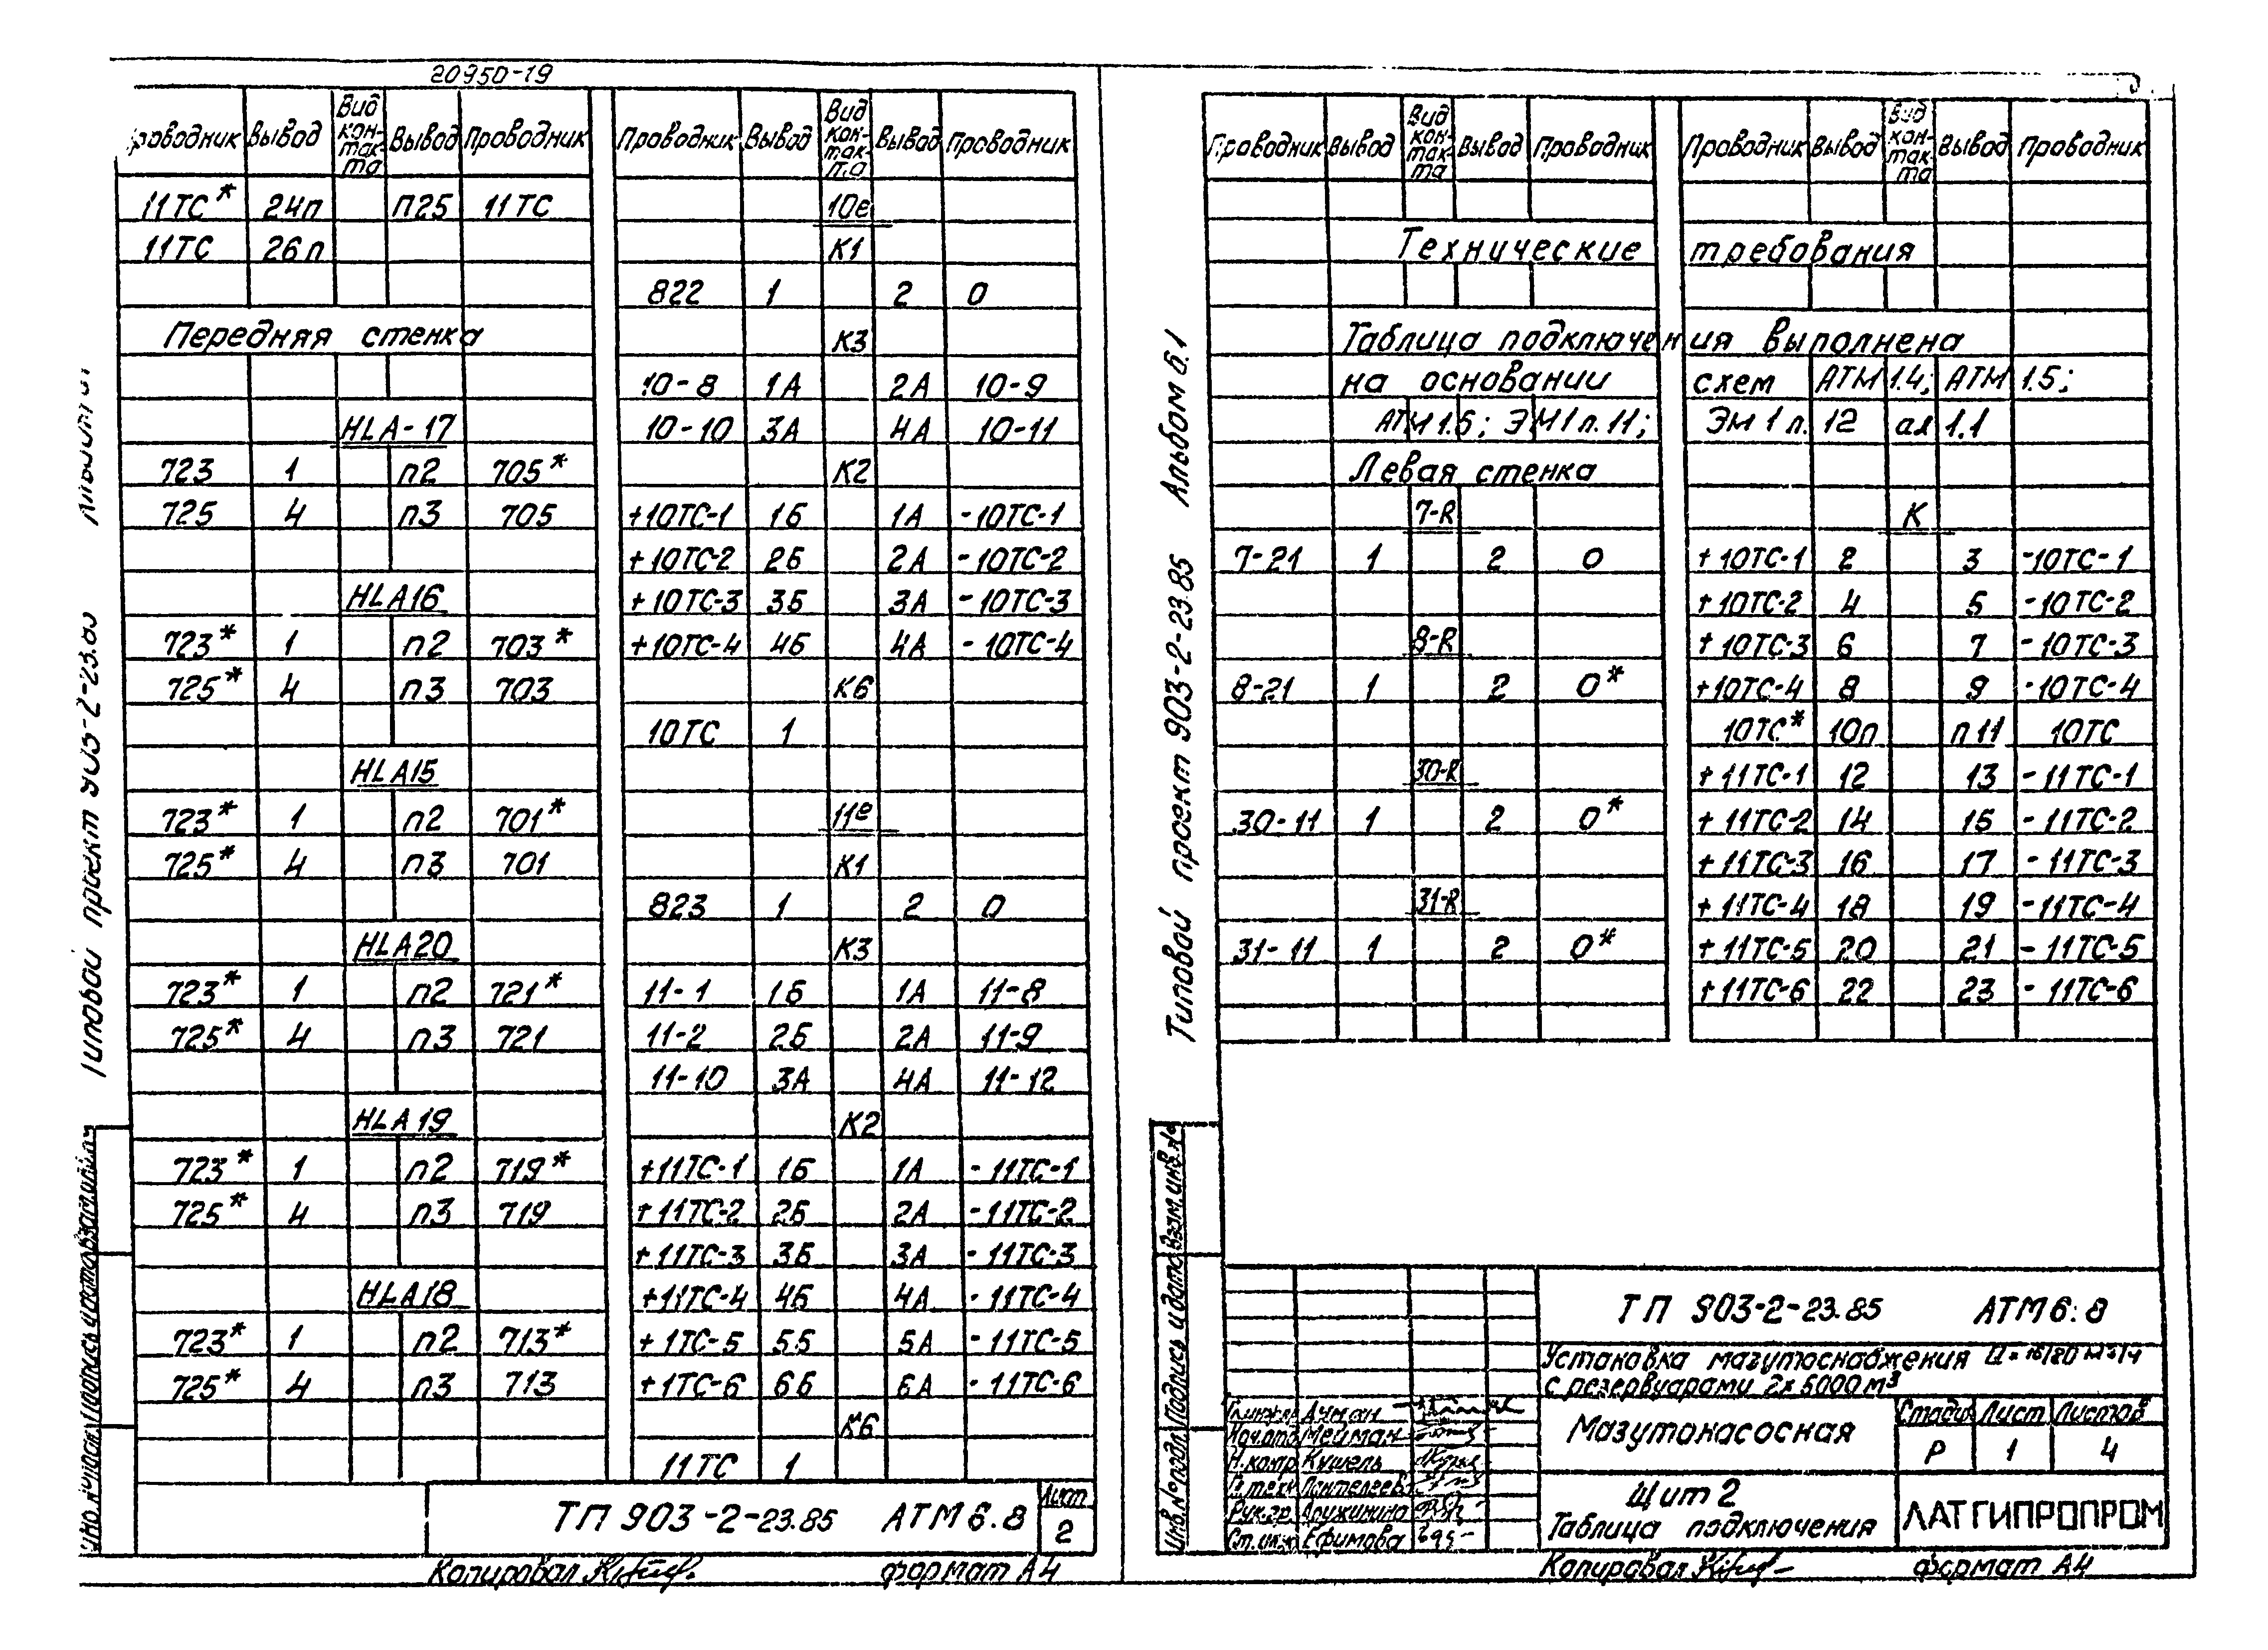 20950-19
Проводник Вывод Вид кон-так-та Вывод Проводник
11ТС* 24п П25 11ТС
11ТС 26п
Передняя стенка
HLA-17
723 1 п2 705*
725 4 п3 705
HLA16
723* 1 п2 703*
725* 4 п3 703
HLA15
723* 1 п2 701*
725* 4 п3 701
HLA20
723* 1 п2 721*
725* 4 п3 721
HLA19
723* 1 п2 719*
725* 4 п3 719
HLA18
723* 1 п2 713*
725* 4 п3 713
Проводник Вывод Вид кон-так-та Вывод Проводник
10е
К1
822 1 2 0
К3
10-8 1А 2А 10-9
10-10 3А 4А 10-11
К2
+10ТС-1 1Б 1А -10ТС-1
+10ТС-2 2Б 2А -10ТС-2
+10ТС-3 3Б 3А -10ТС-3
+10ТС-4 4Б 4А -10ТС-4
К6
10ТС 1
11е
К1
823 1 2 0
К3
11-1 1Б 1А 11-8
11-2 2Б 2А 11-9
11-10 3А 4А 11-12
К2
+11ТС-1 1Б 1А -11ТС-1
+11ТС-2 2Б 2А -11ТС-2
+11ТС-3 3Б 3А -11ТС-3
+11ТС-4 4Б 4А -11ТС-4
+1ТС-5 5Б 5А -11ТС-5
+1ТС-6 6Б 6А -11ТС-6
К6
11ТС 1
Типовой проект 903-2-23.85
ТП 903-2-23.85 АТМ6.8
Лист
2
Копировал
формат А4
Проводник Вывод Вид кон-так-та Вывод Проводник
Проводник Вывод Вид кон-так-та Вывод Проводник
Технические требования
Таблица подключения выполнена
на основании схем АТМ 1.4; АТМ 1.5;
АТМ 1.6; ЭМ1 л.11; ЭМ 1 л. 12 ал 1.1
Левая стенка
7-R
7-21 1 2 0
8-R
8-21 1 2 0*
30-R
30-11 1 2 0*
31-R
31-11 1 2 0*
К
+10ТС-1 2 3 -10ТС-1
+10ТС-2 4 5 -10ТС-2
+10ТС-3 6 7 -10ТС-3
+10ТС-4 8 9 -10ТС-4
10ТС* 10п п11 10ТС
+11ТС-1 12 13 -11ТС-1
+11ТС-2 14 15 -11ТС-2
+11ТС-3 16 17 -11ТС-3
+11ТС-4 18 19 -11ТС-4
+11ТС-5 20 21 -11ТС-5
+11ТС-6 22 23 -11ТС-6
Типовой проект 903-2-23.85 Альбом 6.1
Инв.№подл. Подпись и дата Взам.инв.№
ТП 903-2-23.85 АТМ6.8
Установка мазутоснабжения
с резервуарами 2х5000м³
Мазутонасосная
Стадия Лист Листов
Р 1 4
Щит 2
Таблица подключения
ЛАТГИПРОПРОМ
Мейман
Н.контр Кушель
Рук.гр Дружинина
Ст.инж Ефимова
Копировал
формат А4